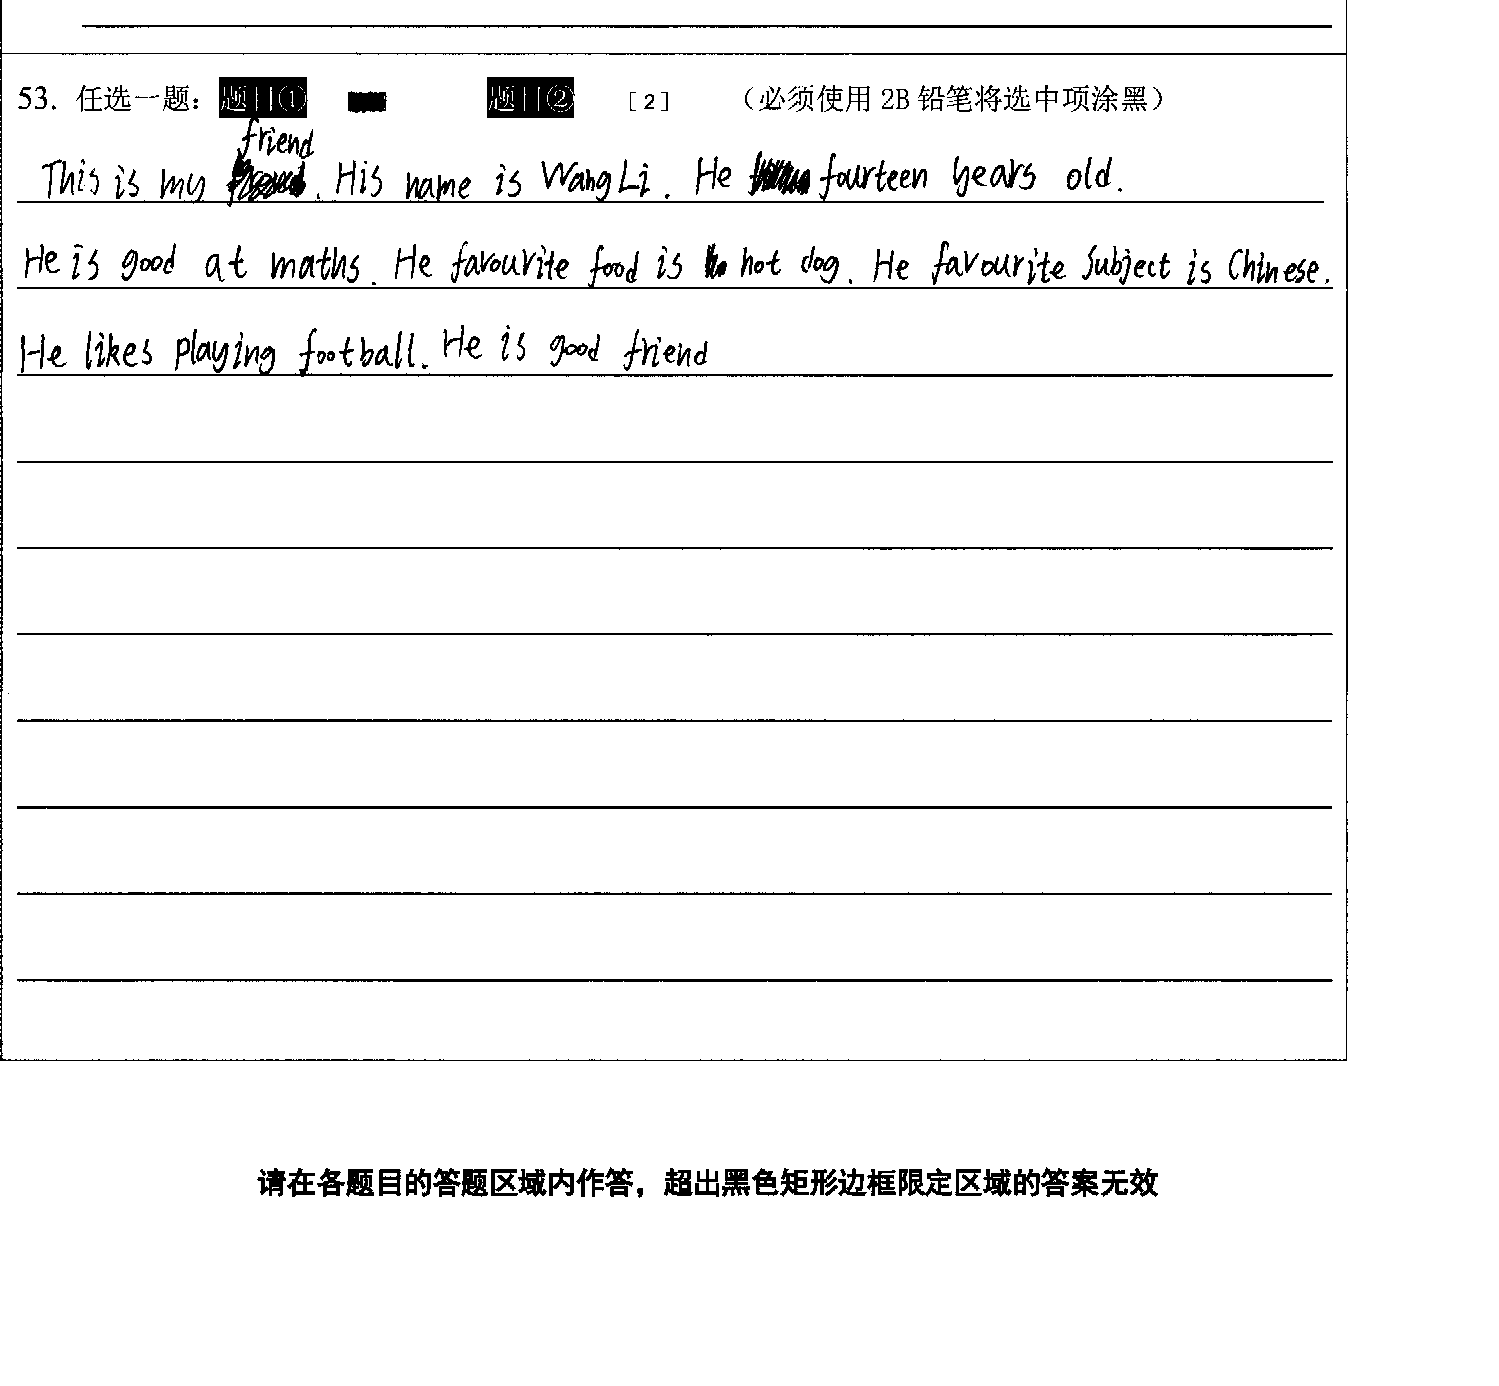 53. 任选一题： 题目① 题目② [2] （必须使用 2B 铅笔将选中项涂黑）
friend
This is my . His name is Wang Li. He fourteen years old.
He is good at maths. He favourite food is hot dog. He favourite Subject is Chinese.
He likes playing football. He is good friend
请在各题目的答题区域内作答，超出黑色矩形边框限定区域的答案无效